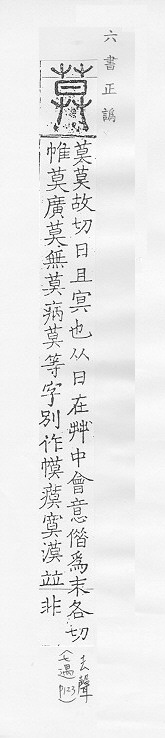 六書正譌
莫
莫莫故切日且冥也从日在茻中會意偕爲末各切
帷莫廣莫無莫病莫等字別作幙瘼寞漠竝非
去聲
(七遇 P123)